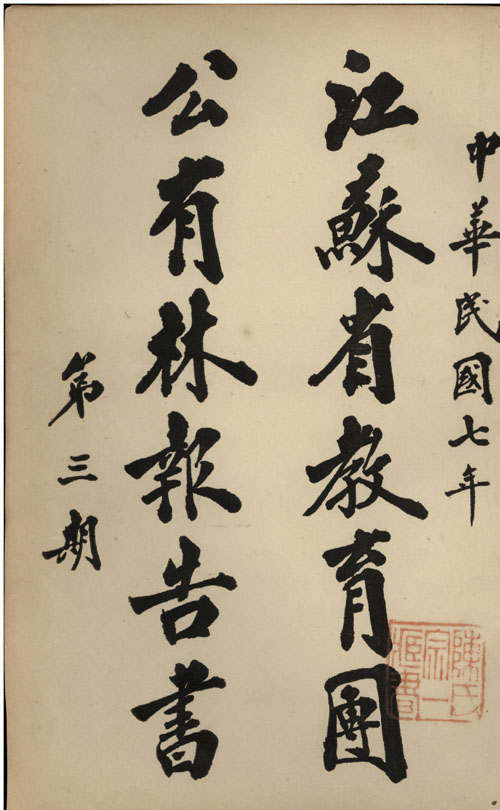 中華民國七年
江蘇省教育團
公有林報告書
第三期
陳氏
宗一